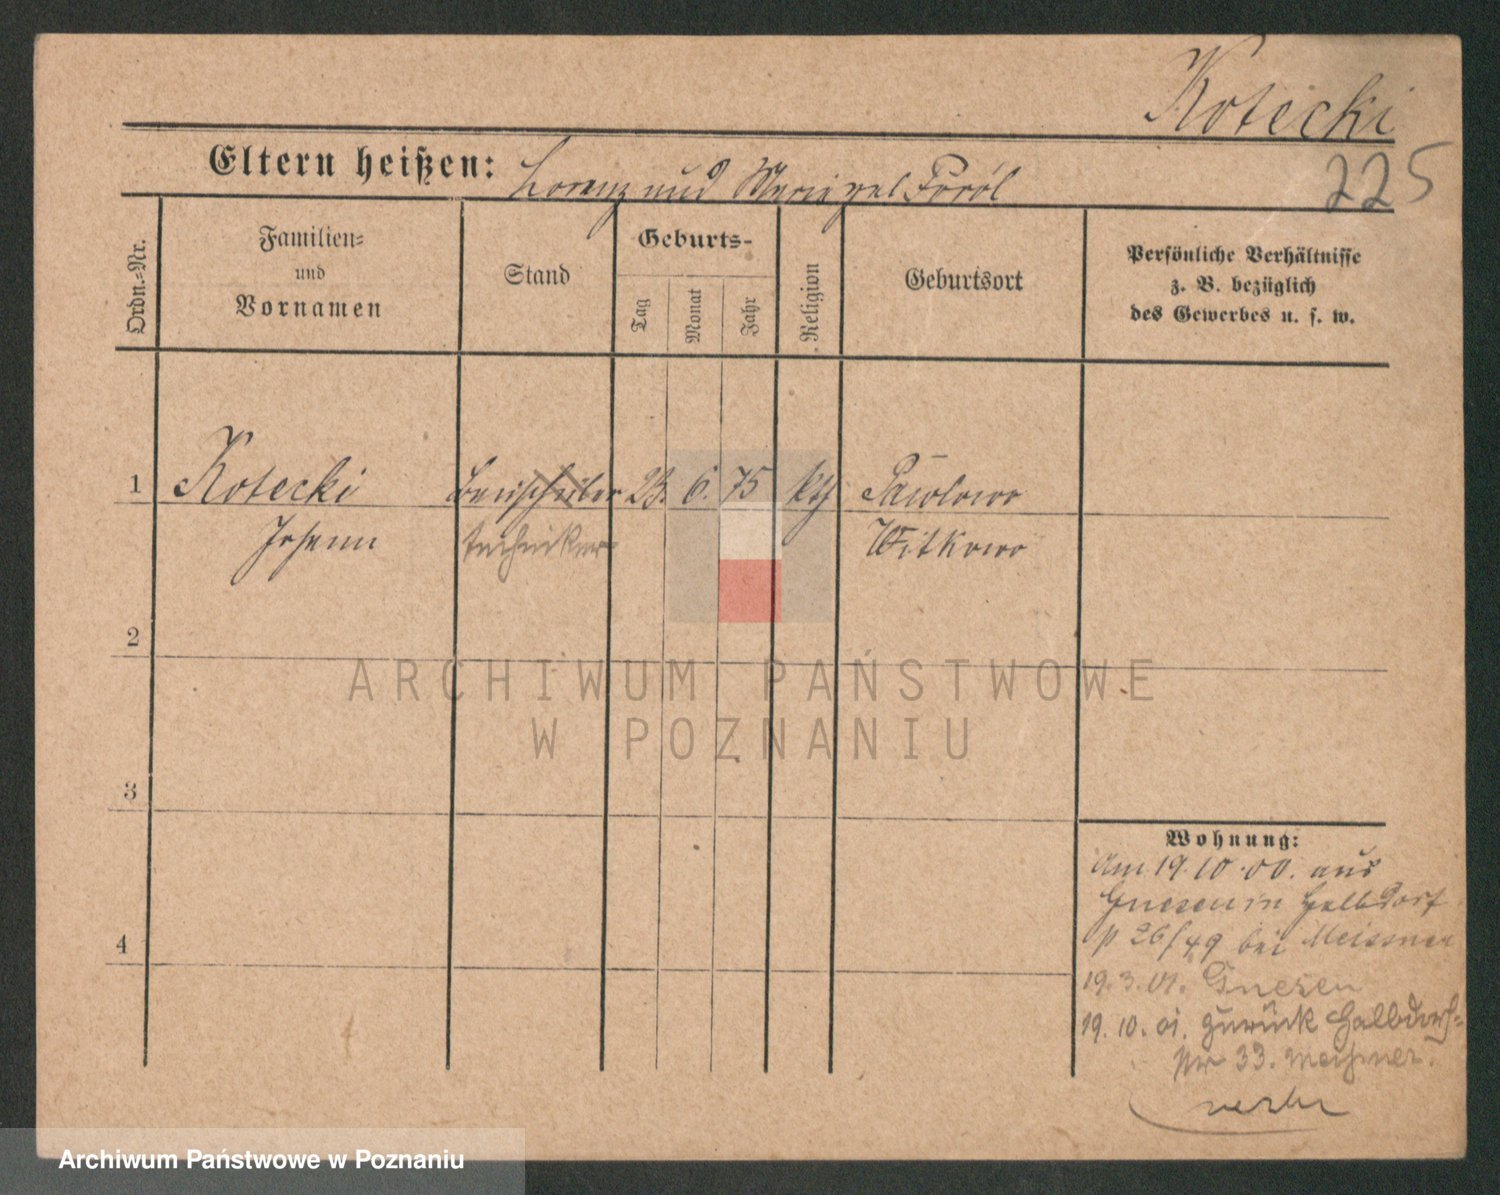 Kotecki
225
Eltern heißen: Lorenz und Marie geb. Król
Ordn.=Nr.
Familien=
und
Vornamen
Stand
Geburts-
Tag
Monat
Jahr
Religion
Geburtsort
Persönliche Verhältnisse
z. B. bezüglich
des Gewerbes u. s. w.
1 Kotecki Bauschüler 23. 6. 75 kth Pawlowo
Johann techniker Witkowo
2
ARCHIWUM PAŃSTWOWE
W POZNANIU
3
Wohnung:
Am 19.10.00. aus
Gnesen in Halbdorf
26/49 bei Meissner
19.3.01. Gnesen
19.10.01. zurück Halbdorf=
Nr 33. Meißner.
4
Archiwum Państwowe w Poznaniu